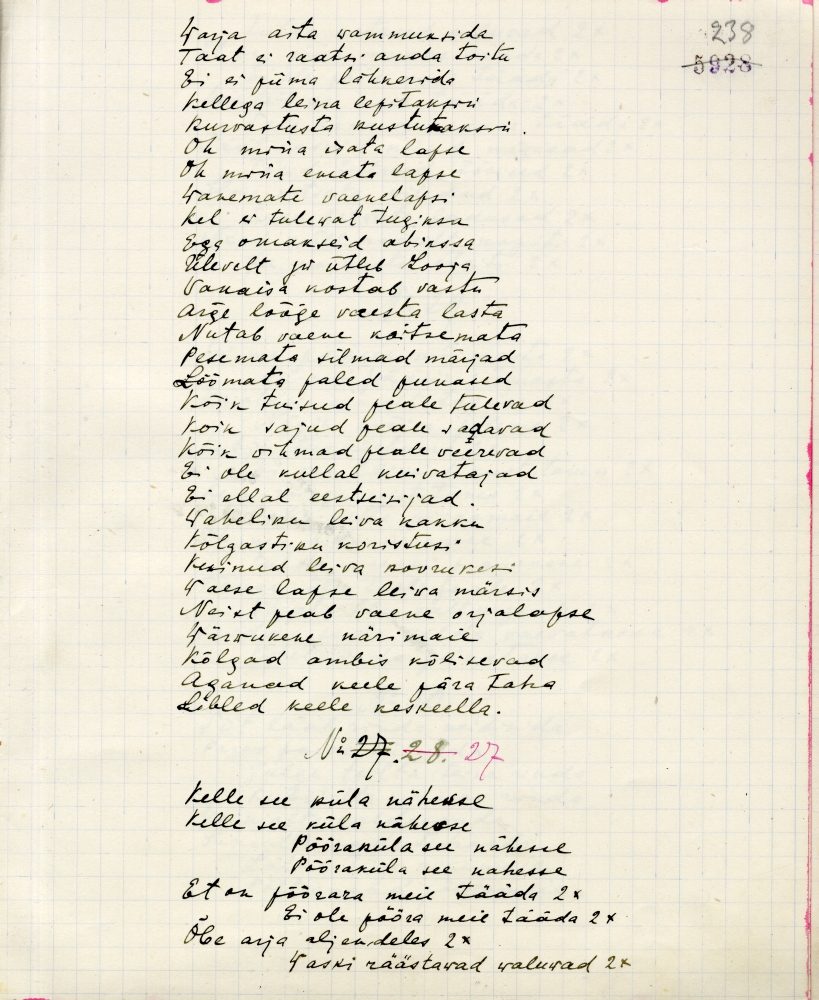 238
5928
Warja aita wammuksida
Taat ei raatsi anda toitu
Ei ei piima lähkerida
Kellega leina lepitaksin
Kurwastusta kustutaksin.
Oh mina isata lapse
Oh mina emata lapse
Wanemate vaenelapsi
Kel ei tulewat tugiksa
Ega omakseid abikssa
Ülevelt ju ütleb Looja
Vanaisa kostab vastu
Arge lööge vaesta lasta
Nutab vaene käitsemata
Pesemata silmad märjad
Löömata paled punased
Kõik tuisud peale tulevad
Koik sajud peale sadavad
Kõik vihmad peale veerevad
Ei ole kullal kuivatajad
Ei ellal eestseisijad.
Waheliku leiva kakku
Kõlgastiku koristusi
Kukinud leiva koorukesi
Waese lapse leiva märsis
Neist peab vaene orjalapse
Wärwukene närimaie
Kõlgad ambis kõlisevad
Aganad keele pära taha
Libled keele keskeella.
№ 27. 28. 27
Kelle see küla nähesse
Kelle see küla nähesse
Pööraküla see nähesse
Pööraküla see nahesse
Et on pöörara meie tääda 2x
Ei ole pööra meie tääda 2x
Õbe arja aljendeles 2x
Waski räästawad waluwad 2x